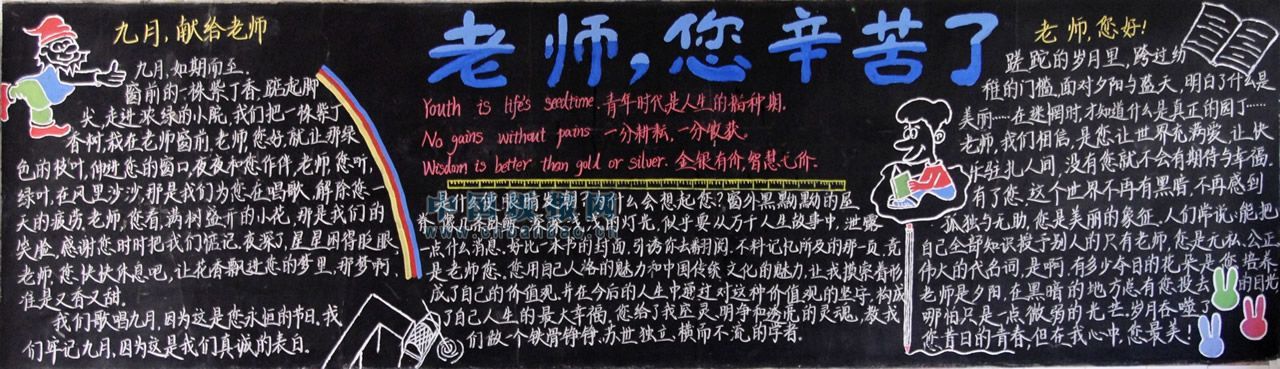 老师，您辛苦了
九月，献给老师
九月，如期而至.
窗前的一株紫丁香踮起脚
尖，走进浓绿的小院，我们把一株紫丁
香树，栽在老师窗前，老师，您好，就让那绿
色的枝叶，伸进您的窗口，夜夜和您作伴，老师，您听，
绿叶，在风里沙沙，那是我们为您在唱歌，解除您一
天的疲劳，老师，您看，满树盛开的小花，那是我们的
笑脸，感谢您时时把我们惦记，夜深了，星星困得眨眼，
老师，您快快休息吧，让花香飘进您的梦里，那梦啊，
准是又香又甜.
我们歌唱九月，因为这是您永恒的节日，我
们牢记九月，因为这是我们真诚的表白.
Youth is life's seedtime. 青年时代是人生的播种期.
No gains without pains 一分耕耘，一分收获.
Wisdom is better than gold or silver. 金银有价，智慧无价.
什么会想起您？窗外黑黝黝的屋
灯光，似乎要从万千人生故事中，泄露
一点什么消息，好比一本书的封面，引诱你去翻阅，不料记忆所及的那一页，竟
是老师您，您用自己人格的魅力和中国传统文化的魅力，让我摸索着形
成了自己的价值观，并在今后的人生中通过对这种价值观的坚守，构成
了自己人生的最大幸福，您给了我空灵、明净和透亮的灵魂，教我
们做一个铁骨铮铮、苏世独立、横而不流的字者.
老师，您好！
蹉跎的岁月里，跨过纷
稚的门槛，面对夕阳与蓝天，明白了什么是
美丽……在迷惘时，才知道什么是真正的园丁……
老师，我们相信，是您让世界充满爱，让快
乐驻扎人间，没有您就不会有期待与幸福.
有了您，这个世界不再有黑暗，不再感到
孤独与无助，您是美丽的象征，人们常说：能把
自己全部知识授于别人的只有老师，您是无私、公正、
伟大的代名词，是啊，有多少今日的花朵是您培养
老师是夕阳，在黑暗的地方总有您投去的目光
哪怕只是一点微弱的光芒，岁月吞噬了
您昔日的青春，但在我心中，您最美！